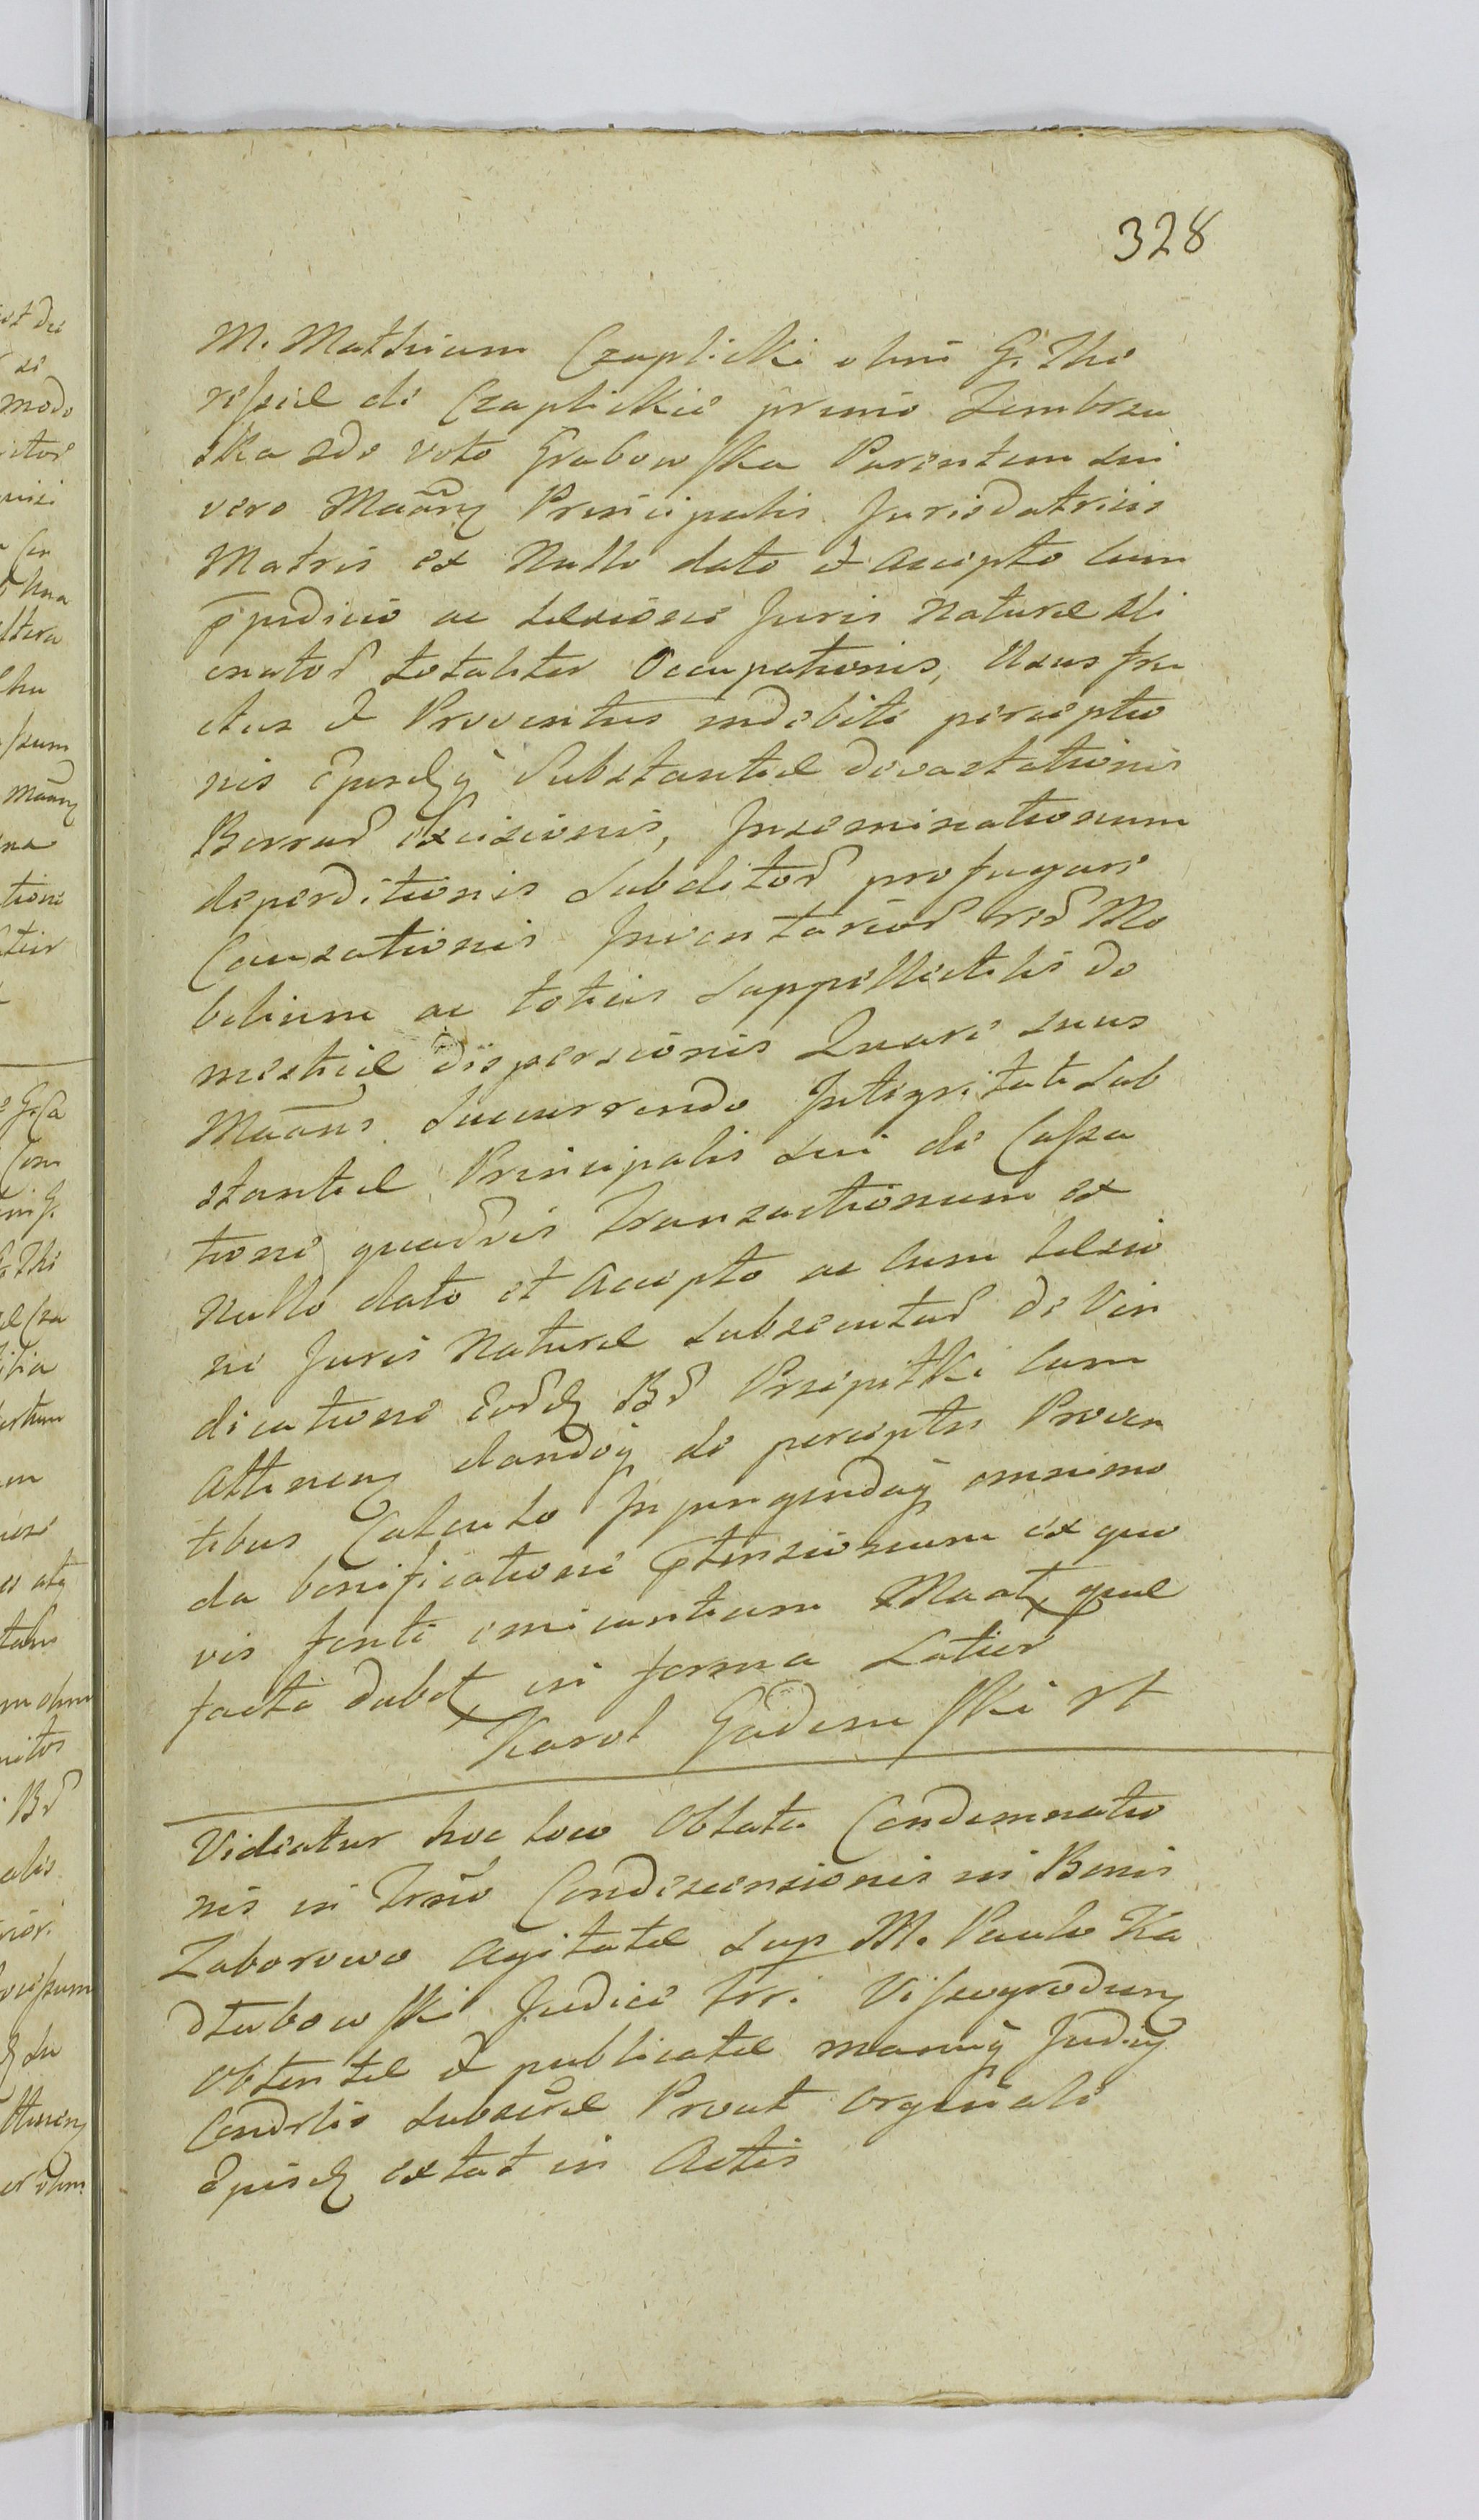 328
M. Mathiam Czaplicki olim G. The
ressiæ de Czaplickie primo Zembrzu
ska 2do voto Grabowska Parentum sui
vero Maāñ Principalis Jurisdatricis
Matris ex Nullo dato et accepto cum
p̄judicio ac læsione Juris Naturæ ali
enator totaliter Occupationis, Usus fru
ctus et Proventus indebite perceptio
nis Ejusdq̃ Substantiæ devastationis
Borrar excisionis, Inseminationum
deperditionis Subditor profugare
Causationis Inventarior rer Mo
bilium ac totius Suppellectilis do
mesticæ dispersionis Quare suus
Maāns Succurrendo Integritati Sub
stantiæ Principalis sui de Cassa
tione quarvis Transactionum ex
Nullo dato et Accepto ac cum læsio
ne Juris Naturæ subsecutar de Vin
dicatione Eord Br Przepitki cum
Attinen dandoq̃ de perceptis Proven
tibus Calculo Injungendaq̃ omnimo
da bonificatione p̄tensionum ex quo
vis fonte emicantium Maat, quæ
facta dabet, in forma Latior
Karol Gadomski rt
Videatur hoc loco Oblata Condemnatio
nis in Trno Condescensionis in Bonis
Zaborowo Agitatæ Sup M. Paulo Ka
dłubowski Judice Trr. Vissogroden
obtentæ et publicatæ manuq̃ Judiq̃
Condrlis Subscræ Prout Orginale
Ejusd extat in Actis